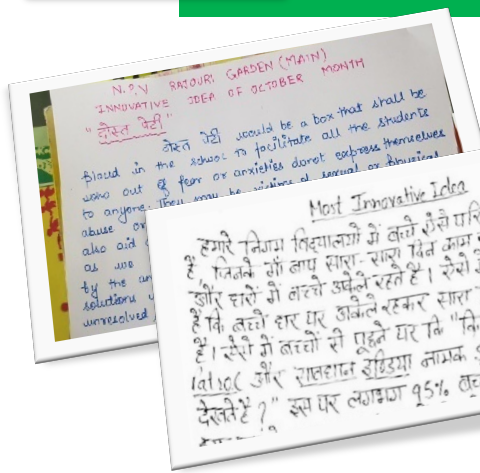 N.P.V RAJOURI GARDEN (MAIN)
INNOVATIVE IDEA OF OCTOBER MONTH
"दोस्त पेटी"
दोस्त पेटी would be a box that shall be
placed in the school to facilitate all the students
who out of fear or anxieties donot express themselves
to anyone. They may be victims of sexual or physical
abuse or
also aid
as we
by the an
solutions
unresolved
Most Innovative Idea
हमारे निगम विद्यालयों में बच्चे ऐसे परि
हैं जिनके माँ बाप सारा-सारा दिन काम
और घरों में बच्चे अकेले रहते हैं। ऐसे में
है कि बच्चे घर पर अकेले रहकर सारा
हैं। ऐसे में बच्चों से पूछने पर कि "कि
और सावधान इण्डिया नामक
देखते हैं?" इस पर लगभग 95% बच्